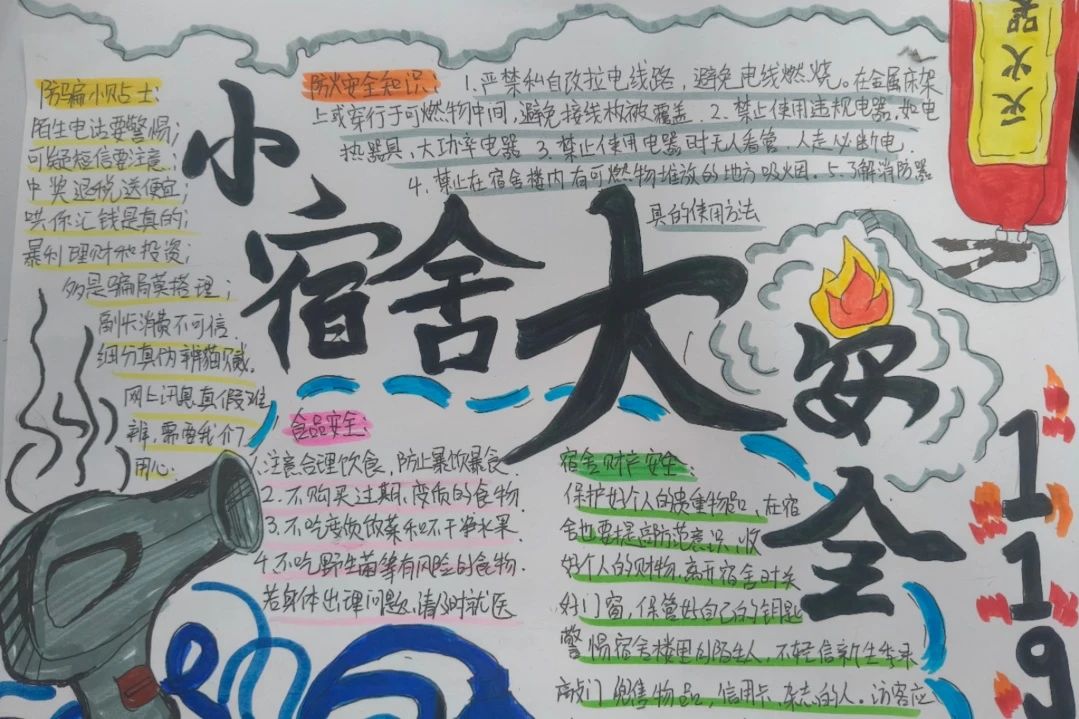 小宿舍大安全
灭火器
防骗小贴士:
陌生电话要警惕;
可疑短信要注意;
中奖退税送便宜;
哄你汇钱是真的;
暴利理财和投资;
多是骗局莫搭理;
刷卡消费不可信
细分真伪辨猫腻.
网上讯息真假难
辨,需要我们
用心.
防火安全知识:
1.严禁私自改拉电线路,避免电线燃烧。在金属床架
上或穿行于可燃物中间,避免接线板被覆盖.2.禁止使用违规电器,如电
热器具,大功率电器 3.禁止使用电器时无人看管,人走必断电.
4.禁止在宿舍楼内有可燃物堆放的地方吸火烟.5.了解消防器
具的使用方法
食品安全:
1.注意合理饮食,防止暴饮暴食.
2.不购买过期、变质的食物
3.不吃变质饭菜和不干净水果
4.不吃野生菌等有风险的食物.
若身体出理问题,请及时就医
宿舍财产安全:
保护好个人的贵重物品,在宿
舍也要提高防范意识,收
好个人的财物,离开宿舍时关
好门窗,保管好自己的钥匙
警惕宿舍楼里的陌生人,不轻信新生来
敲门兜售物品,信用卡,杂志的人.访客应
119